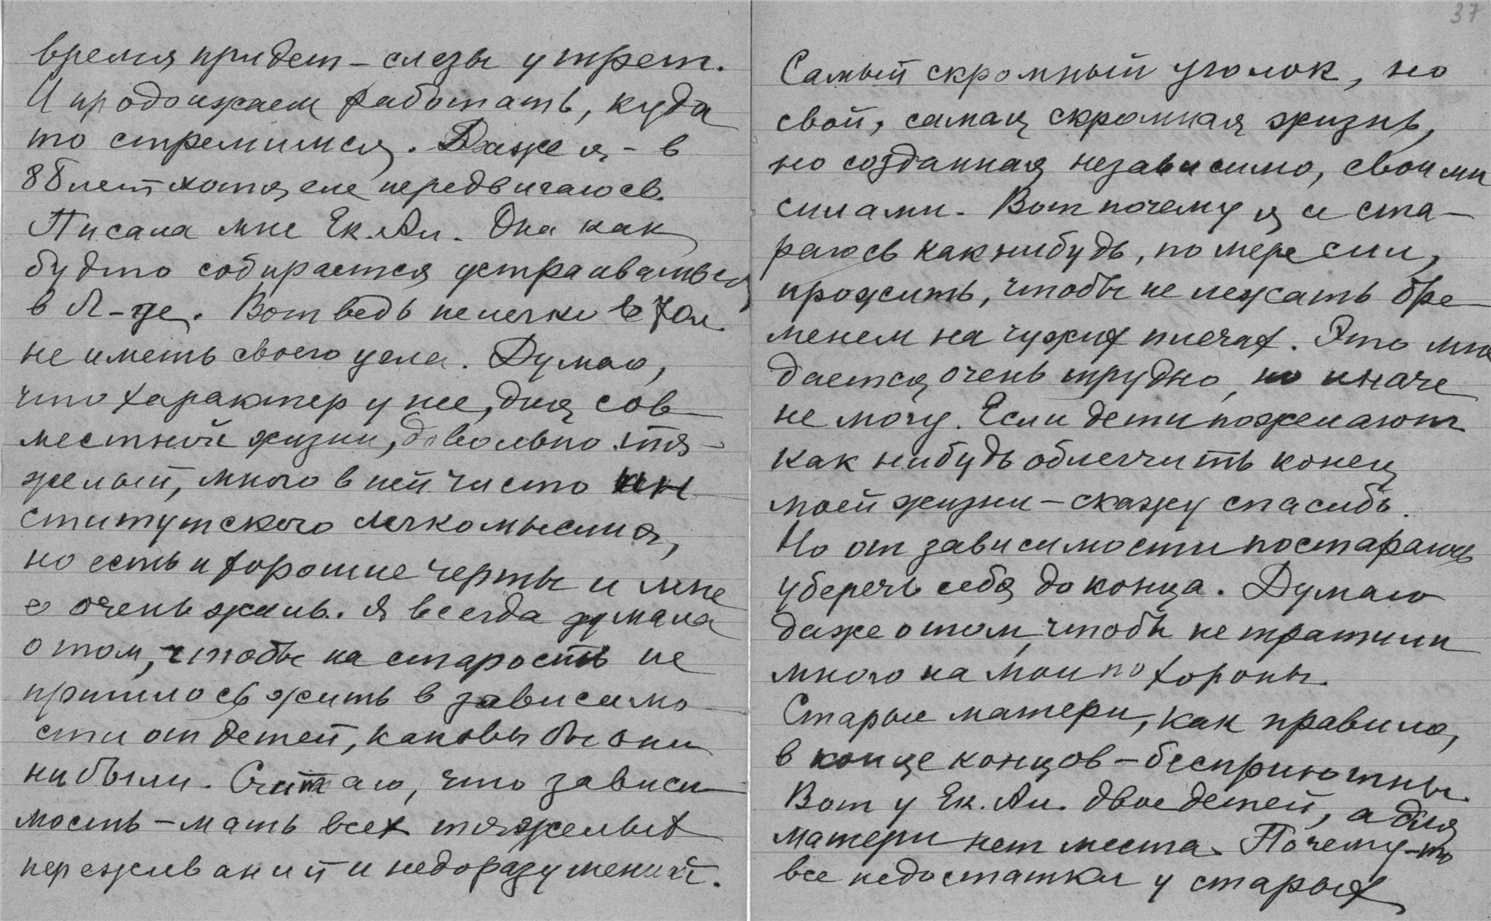 время придет – слезы утрет.
И продолжаем работать, куда
то стремимся. Даже я – в
88 лет хотя еле передвигаюсь.
Писала мне Ек. Ал. Она как
будто собирается устраиваться
в Л-де. Вот ведь нелегко в 70 л.
не иметь своего угла. Думаю,
что характер у нее, для сов-
местной жизни, довольно тя-
желый, много в ней чисто ин-
ститутского легкомыслия,
но есть и хорошие черты и мне
ее очень жаль. Я всегда думала
о том, чтобы на старость не
пришлось жить в зависимо-
сти от детей, каковы бы они
ни были. Считаю, что зависи-
мость – мать всех тяжелых
переживаний и недоразумений.
37
Самый скромный уголок, но
свой, самая скромная жизнь,
но созданная независимо, своими
силами. Вот почему я и ста-
раюсь как нибудь, по мере сил,
прожить, чтобы не лежать бре-
менем на чужих плечах. Это мне
дается очень трудно, но иначе
не могу. Если дети пожелают
как нибудь облегчить конец
моей жизни – скажу спасибо.
Но от зависимости постараюсь
уберечь себя до конца. Думаю
даже о том, чтобы не тратили
много на мои похороны.
Старые матери, как правило,
в конце концов – бесприютны.
Вот у Ек. Ал. двое детей, а для
матери нет места. Почему-то
все недостатки у старых